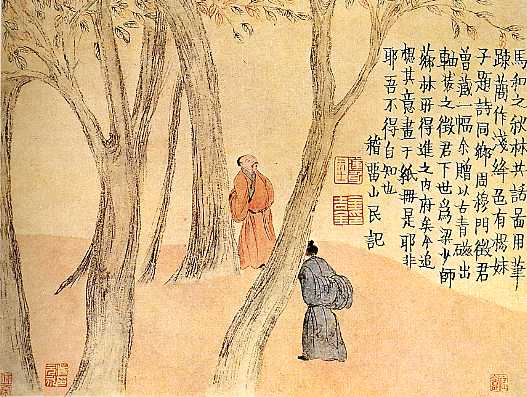 馬和之秋林共話圖用筆
踈簡作淺絳色有楊妹
子題詩同鄉周穆門徵君
曾藏一幅余贈以古青磁出
軸裝之徵君下世爲梁少師
薌林所得進之内府矣今追
想其意畫于紙冊是耶非
耶吾不得自知也
稽留山民記